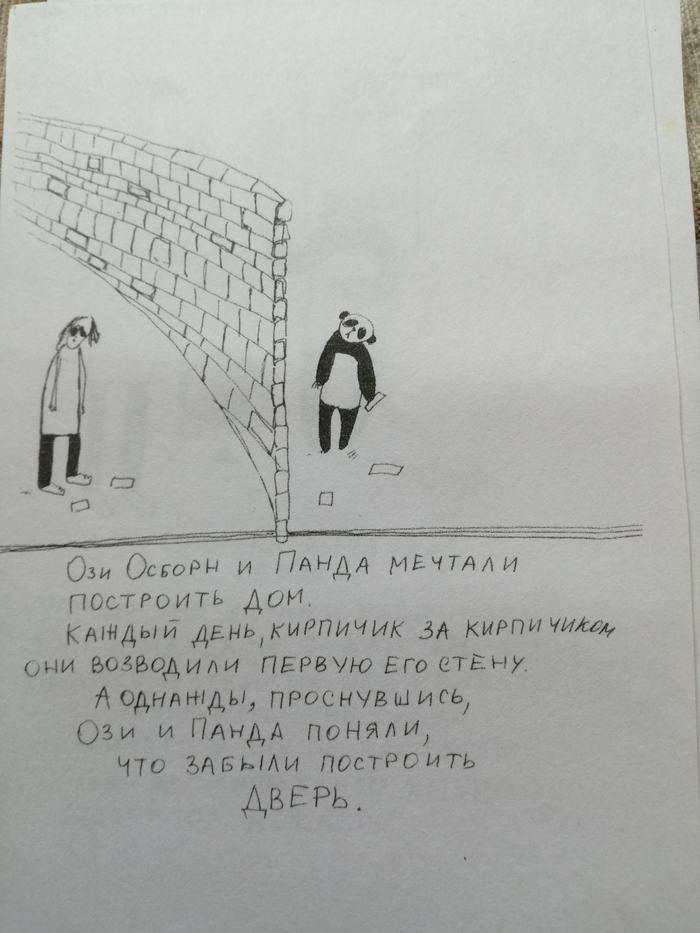 Ози Осборн и Панда мечтали
построить дом.
Каждый день, кирпичик за кирпичиком
они возводили первую его стену.
А однажды, проснувшись,
Ози и Панда поняли,
что забыли построить
ДВЕРЬ.